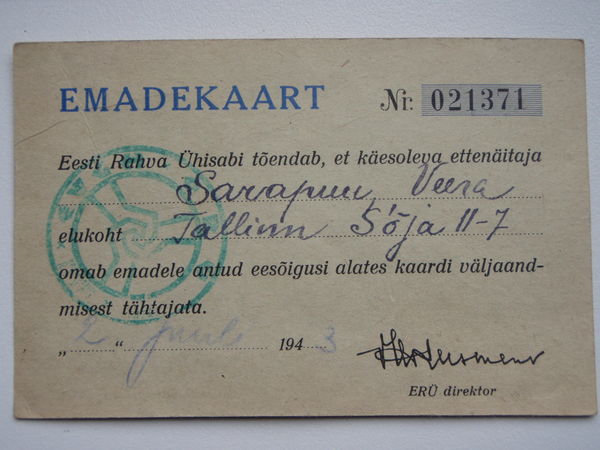 EMADEKAART Nr. 021371
Eesti Rahva Ühisabi tõendab, et käesoleva ettenäitaja
Sarapuu, Veera
elukoht Tallinn Sõja 11-7
omab emadele antud eesõigusi alates kaardi väljaand-
misest tähtajata.
„ 2 “ juuli 194 3
ERÜ direktor